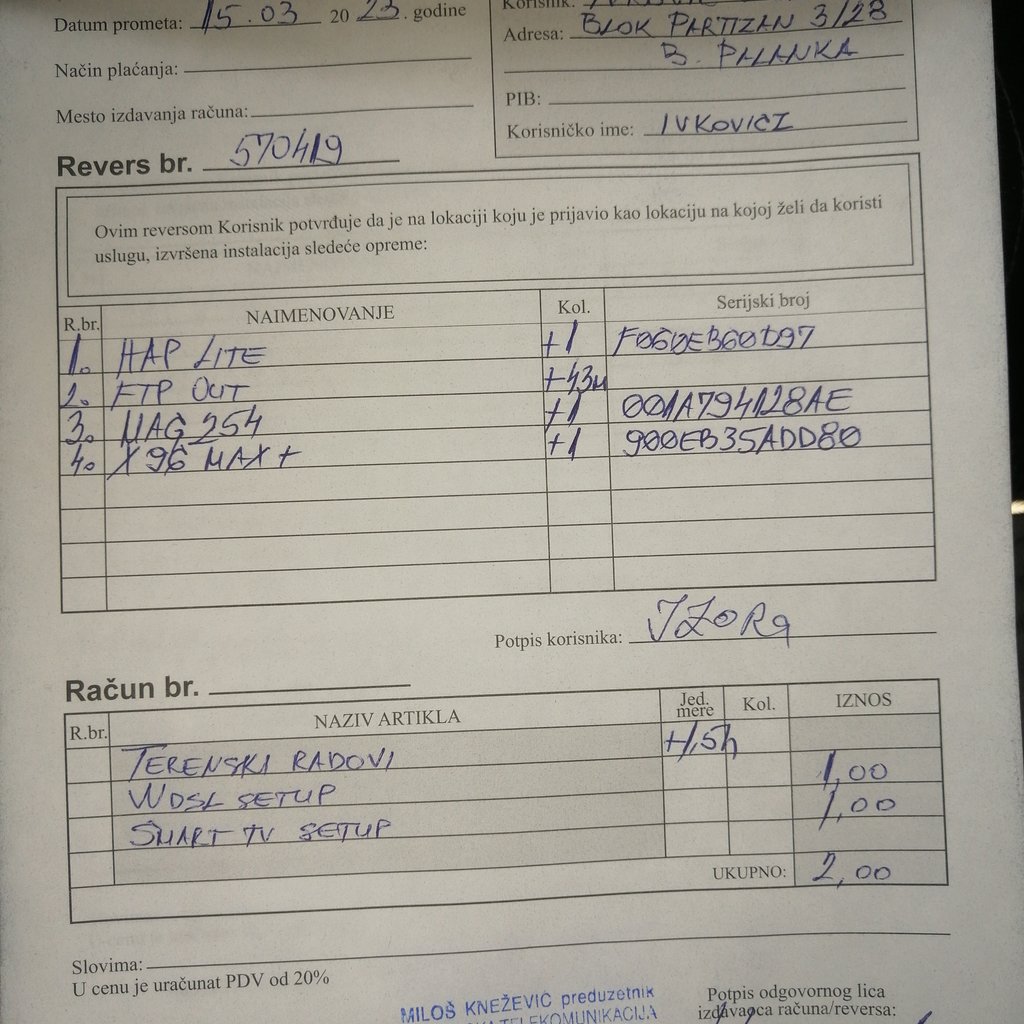 Datum prometa: 15.03 2023. godine
Korisnik:
Adresa: BLOK PARTIZAN 3/28
B. PALANKA
Način plaćanja:
Mesto izdavanja računa:
PIB:
Korisničko ime: IVKOVICI
Revers br. 570419
Ovim reversom Korisnik potvrđuje da je na lokaciji koju je prijavio kao lokaciju na kojoj želi da koristi
uslugu, izvršena instalacija sledeće opreme:
R.br. NAIMENOVANJE Kol. Serijski broj
1. HAP LITE +1 F060EB60D97
2. FTP OUT +43m
3. MAG 254 +1 001A794128AE
4. X96 MAX+ +1 900EB35ADD80
Potpis korisnika: IZORA
Račun br.
R.br. NAZIV ARTIKLA Jed. mere Kol. IZNOS
TERENSKI RADOVI +1,5h
WDSL SETUP 1,00
SMART TV SETUP 1,00
UKUPNO: 2,00
Slovima:
U cenu je uračunat PDV od 20%
MILOŠ KNEŽEVIĆ preduzetnik
TELEKOMUNIKACIJA
Potpis odgovornog lica
izdavaoca računa/reversa: